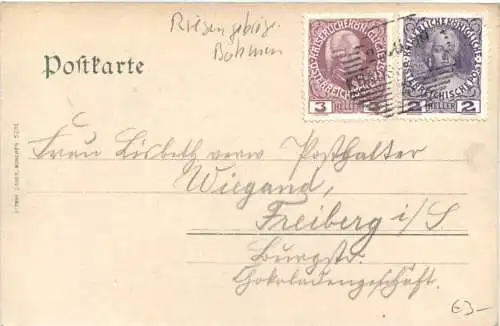 Riesengebirge
Böhmen
Postkarte
KAISERLICHE KÖNIGLICHE
ÖSTERREICHISCHE POST
3 HELLER 3
KAISERLICHE KÖNIGLICHE
ÖSTERREICHISCHE POST
2 HELLER 2
Frau Lisbeth verw Posthalter
Wiegand,
Freiberg i/S
Burgstr.
Chokoladengeschäft.
63-